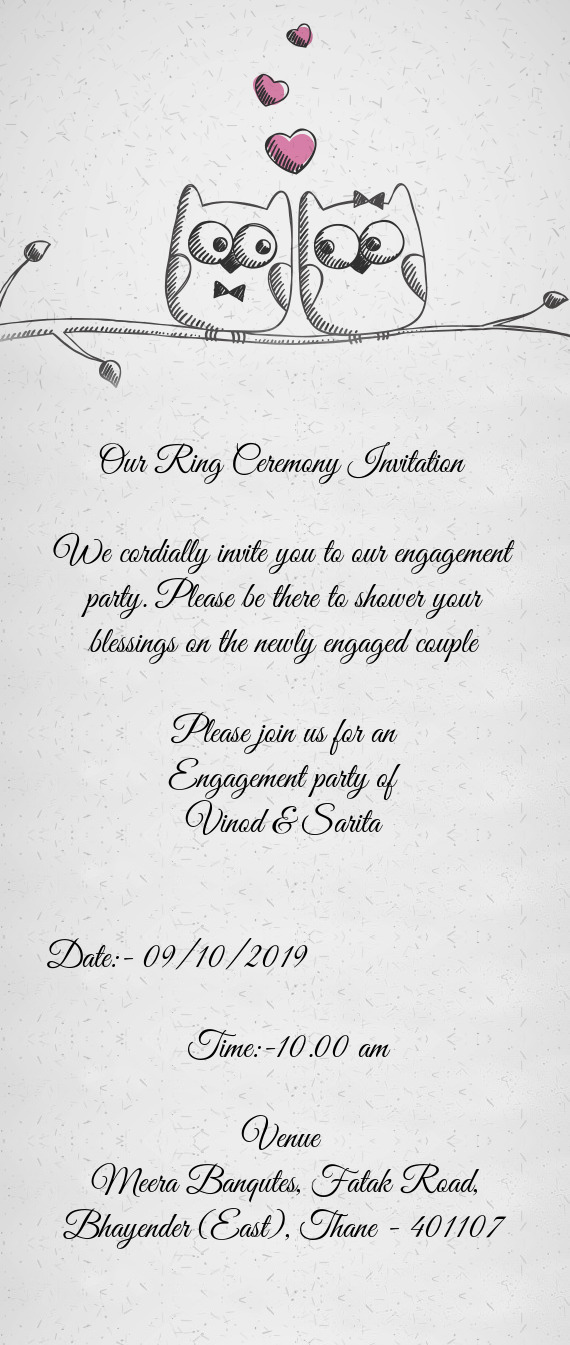 Our Ring Ceremony Invitation
We cordially invite you to our engagement
party. Please be there to shower your
blessings on the newly engaged couple
Please join us for an
Engagement party of
Vinod & Sarita
Date:- 09/10/2019
Time:-10.00 am
Venue
Meera Banqutes, Fatak Road,
Bhayender (East), Thane - 401107